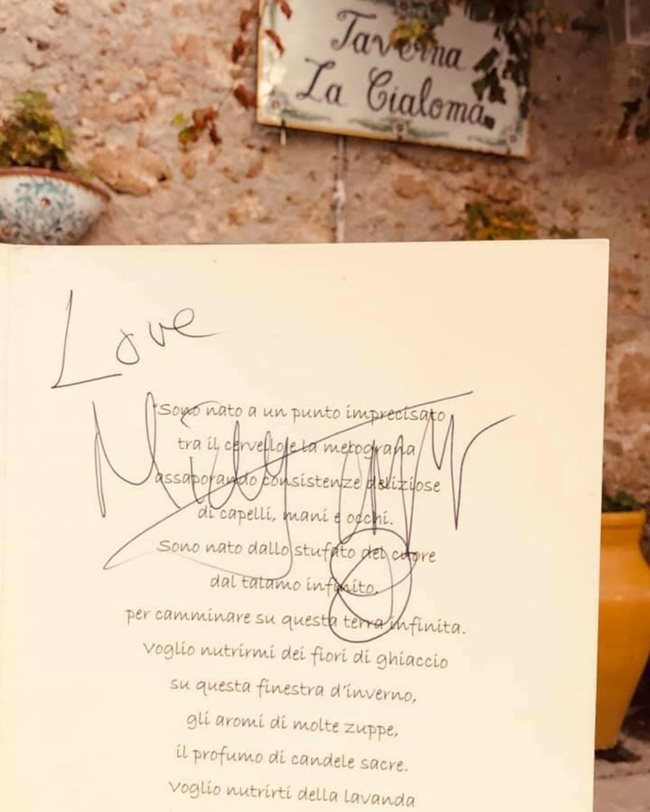 Taverna
La Cialoma
Love
Sono nato a un punto imprecisato
tra il cervello e la melograna
assaporando consistenze deliziose
di capelli, mani e occhi.
Sono nato dallo stufato del cuore
dal talamo infinito,
per camminare su questa terra infinita.
Voglio nutrirmi dei fiori di ghiaccio
su questa finestra d'inverno,
gli aromi di molte zuppe,
il profumo di candele sacre.
Voglio nutrirti della lavanda